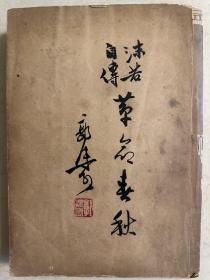 沫若
自傳
革命春秋
郭沫若